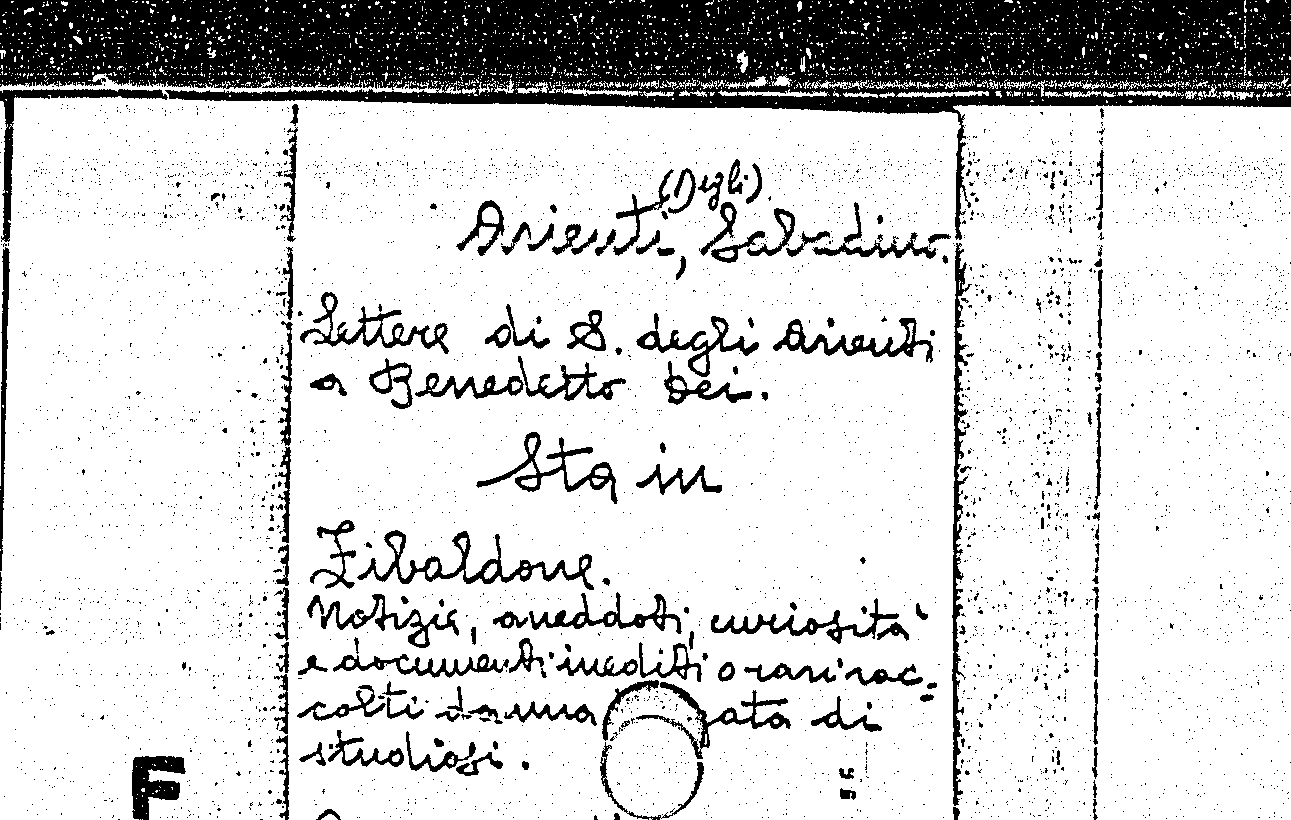 (Degli)
Arienti, Sabadino.
Lettere di S. degli Arienti
a Benedetto Dei.
Sta in
Zibaldone.
Notizie, aneddoti, curiosità
e documenti inediti o rari rac=
colti da una ata di
studiosi.
F